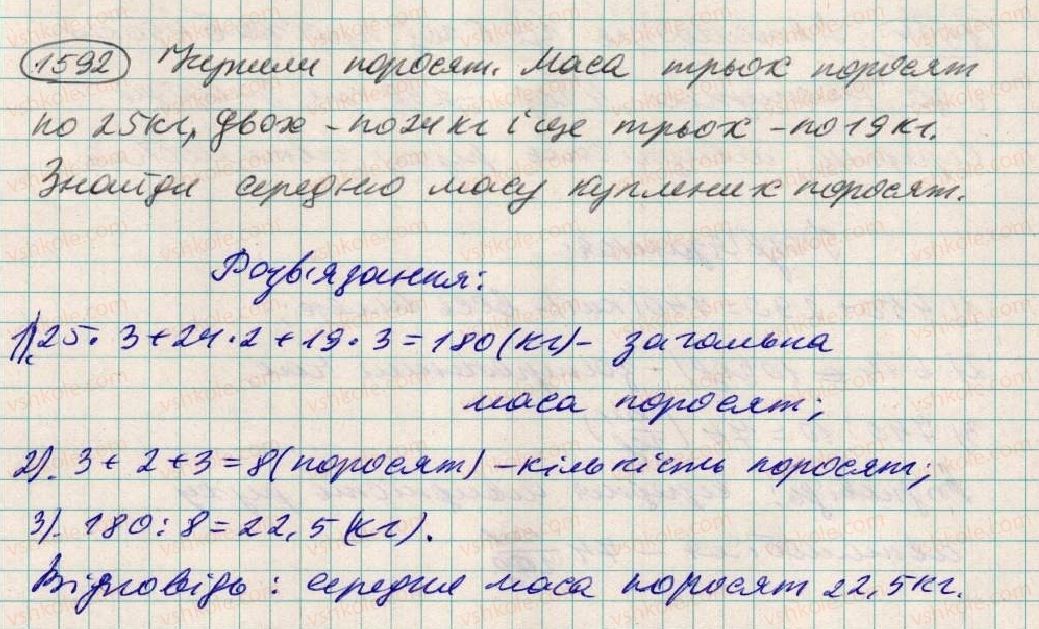 1592 Купили поросят. Маса трьох поросят
по 25кг, двох - по 24 кг і ще трьох - по 19 кг.
Знайди середню масу куплених поросят.
Розв'язання:
1). 25 · 3 + 24 · 2 + 19 · 3 = 180 (кг) - загальна
маса поросят;
2). 3 + 2 + 3 = 8 (поросят) - кількість поросят;
3). 180 : 8 = 22,5 (кг).
Відповідь : середня маса поросят 22,5 кг.